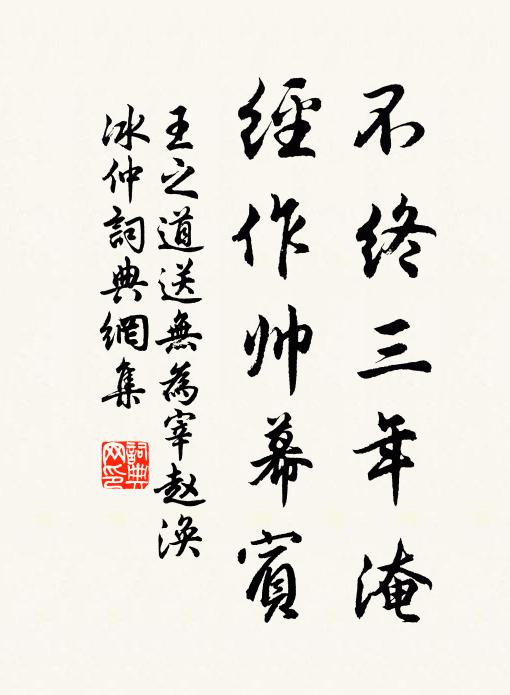 不终三年淹
經作帅幕賓
王之道送無為宰赵渙
冰仲詞典網集
詞典网印